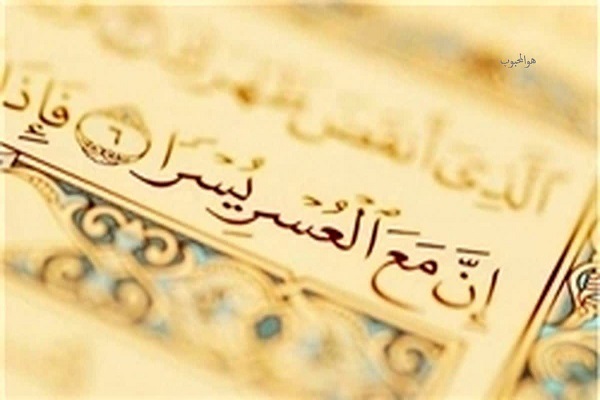 هوالمحبوب
ٱلَّذِىٓ أَنقَضَ ظَهْرَكَ
إِنَّ مَعَ ٱلْعُسْرِ يُسْرًا ٦ فَإِذَا